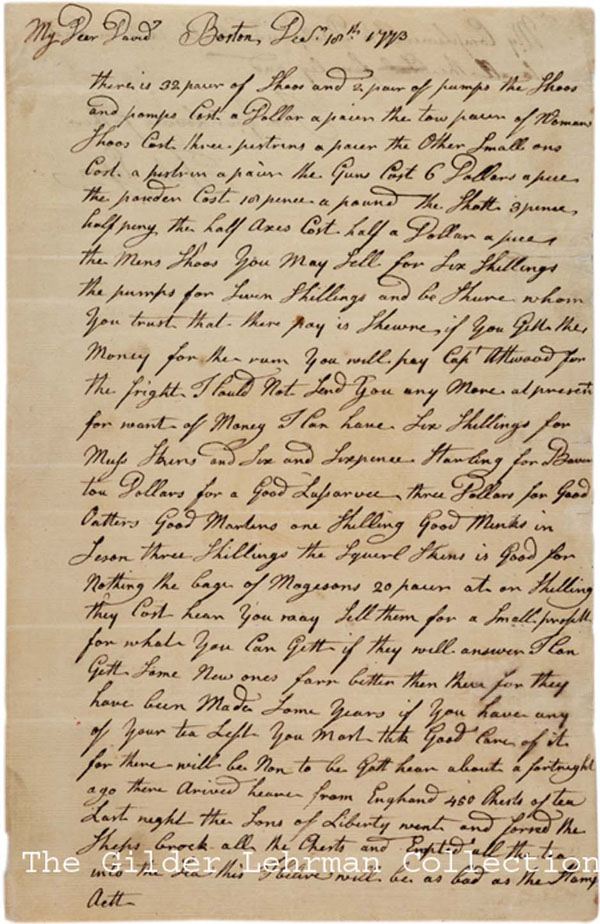 My Deer David Boston, Decr. 18th 1773
there is 32 pauer of Shoos and 2 pauer of pumps the Shoos
and pomps Cost a Dollar a pauer the tow pauer of Womans
Shoos Cost three pistrens a pauer the Other Small ons
Cost a pistrin a pauer the Guns Cost 6 Dollars a peice
the powder Cost 18 pence a pound the Shott 3 pence,
half peny the half Axes Cost half a Dollar a peice
the Mens Shoos You May Sell for Six Shillings
the pumps for Seven Shillings and be Shure whom
You trust that there pay is Shewre if You Gitt the
Money for the rum You will pay Capt. Attwood for
the fright I Could Not Send You any More at present
for want of Money I Can have Six Shillings for
Muss Skins and Six and Sixpence Starling for Baver
tou Dollars for a Good Lussarvee three Dollars for Good
Oatters Good Martens one Shilling Good Minks in
Seson three Shillings the Squerl Skins is Good for
Nothing the bage of Mogesons 20 pauer at on Shilling
they Cost hear You may Sell them for a Small profitt
for what You Can Gett if they will answer I Can
Gett Some New ones farr better then these for they
have been Made Some Years if You have any
of Your tea Left You Most take Good Care of it
for there will be Non to be Gott hear about a fortnight
ago there Arived heare from England 450 Chests of tea
Last night the Sons of Liberty went and forsed the
Sheps brock all the Chests and Empted all the tea
into the Sea this I belive will be as bad as the Stamp
Actt
The Gilder Lehrman Collection